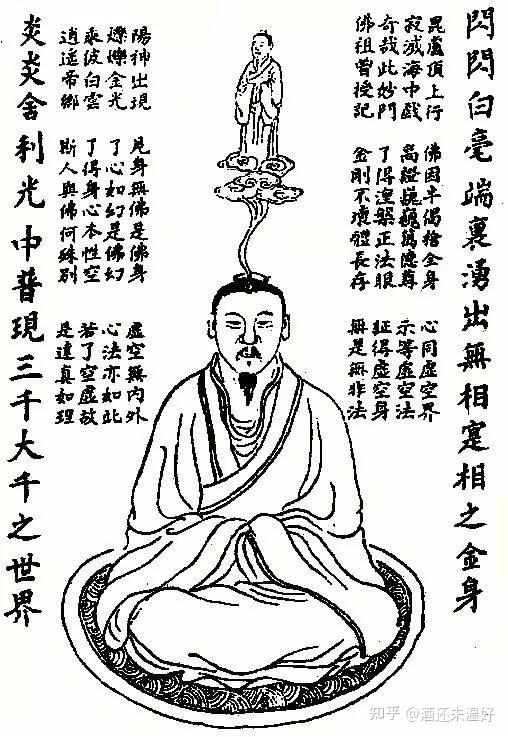 閃閃白毫端裏湧出無相寔相之金身
毘盧頂上行
寂滅海中戲
奇哉此妙門
佛祖曾授記
佛因半偈捨全身
高蹬巍巍萬德尊
了得涅槃正法眼
金剛不壞體長存
心同虛空界
示等虛空法
証得虛空身
無是無非法
陽神出現
爍爍金光
乘彼白雲
逍遙帝鄉
見身無佛是佛身
了心如幻是佛幻
了得身心本性空
斯人與佛何殊別
虛空無內外
心法亦如此
若了空虛故
是達真如理
炎炎舍利光中普現三千大千之世界
知乎 @酒还未温好